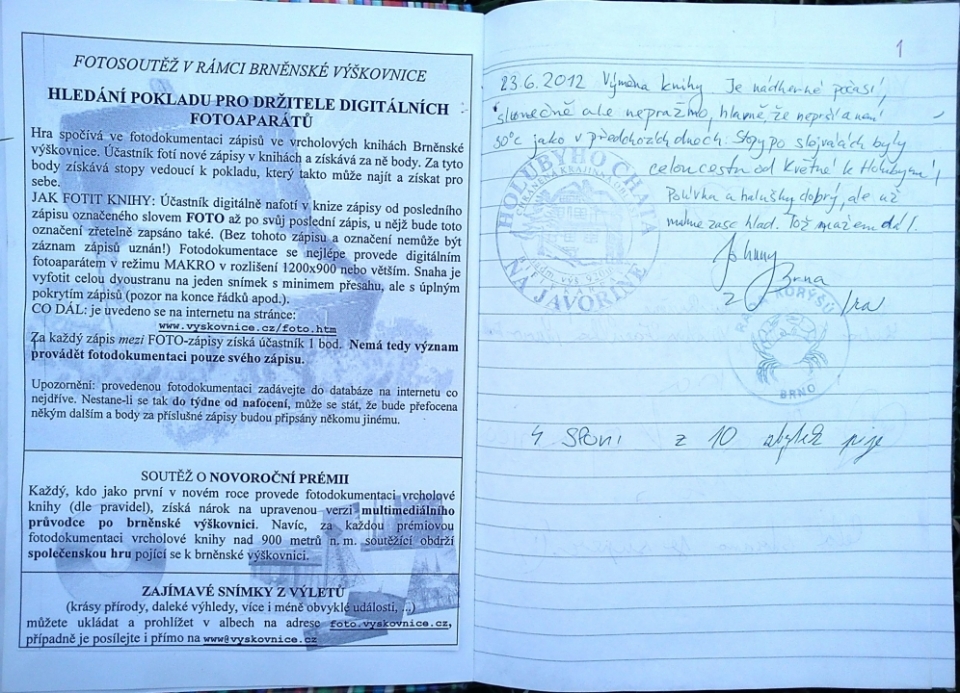 FOTOSOUTĚŽ V RÁMCI BRNĚNSKÉ VÝŠKOVNICE
HLEDÁNÍ POKLADU PRO DRŽITELE DIGITÁLNÍCH
FOTOAPARÁTŮ
Hra spočívá ve fotodokumentaci zápisů ve vrcholových knihách Brněnské
výškovnice. Účastník fotí nové zápisy v knihách a získává za ně body. Za tyto
body získává stopy vedoucí k pokladu, který takto může najít a získat pro
sebe.
JAK FOTIT KNIHY: Účastník digitálně nafotí v knize zápisy od posledního
zápisu označeného slovem FOTO až po svůj poslední zápis, u nějž bude toto
označení zřetelně zapsáno také. (Bez tohoto zápisu a označení nemůže být
záznam zápisů uznán!) Fotodokumentace se nejlépe provede digitálním
fotoaparátem v režimu MAKRO v rozlišení 1200x900 nebo větším. Snaha je
vyfotit celou dvoustranu na jeden snímek s minimem přesahu, ale s úplným
pokrytím zápisů (pozor na konce řádků apod.).
CO DÁL: je uvedeno se na internetu na stránce:
www.vyskovnice.cz/foto.htm
Za každý zápis mezi FOTO-zápisy získá účastník 1 bod. Nemá tedy význam
provádět fotodokumentaci pouze svého zápisu.
Upozornění: provedenou fotodokumentaci zadávejte do databáze na internetu co
nejdříve. Nestane-li se tak do týdne od nafocení, může se stát, že bude přefocena
někým dalším a body za příslušné zápisy budou připsány někomu jinému.
SOUTĚŽ O NOVOROČNÍ PRÉMII
Každý, kdo jako první v novém roce provede fotodokumentaci vrcholové
knihy (dle pravidel), získá nárok na upravenou verzi multimediálního
průvodce po brněnské výškovnici. Navíc, za každou prémiovou
fotodokumentaci vrcholové knihy nad 900 metrů n. m. soutěžící obdrží
společenskou hru pojící se k brněnské výškovnici.
ZAJÍMAVÉ SNÍMKY Z VÝLETŮ
(krásy přírody, daleké výhledy, více i méně obvyklé události, ...)
můžete ukládat a prohlížet v albech na adrese foto.vyskovnice.cz,
případně je posílejte i přímo na www@vyskovnice.cz
1
23.6.2012 Výměna knihy Je nádherné počasí,
slunečně ale nepražmo, hlavně, že neprší a není
30°C jako v předchozích dnech. Stopy po slojvácích byly
celou cestu od Květné k Holubymu!
Polívka a halušky dobrý, ale už
máme zase hlad. Tož mažem dál.
Johuny
z Brna
Ira
HOLUBYHO CHATA
NA JAVORINE
KORÝŠŮ
BRNO
4 Sloni z 10 zbytek pije